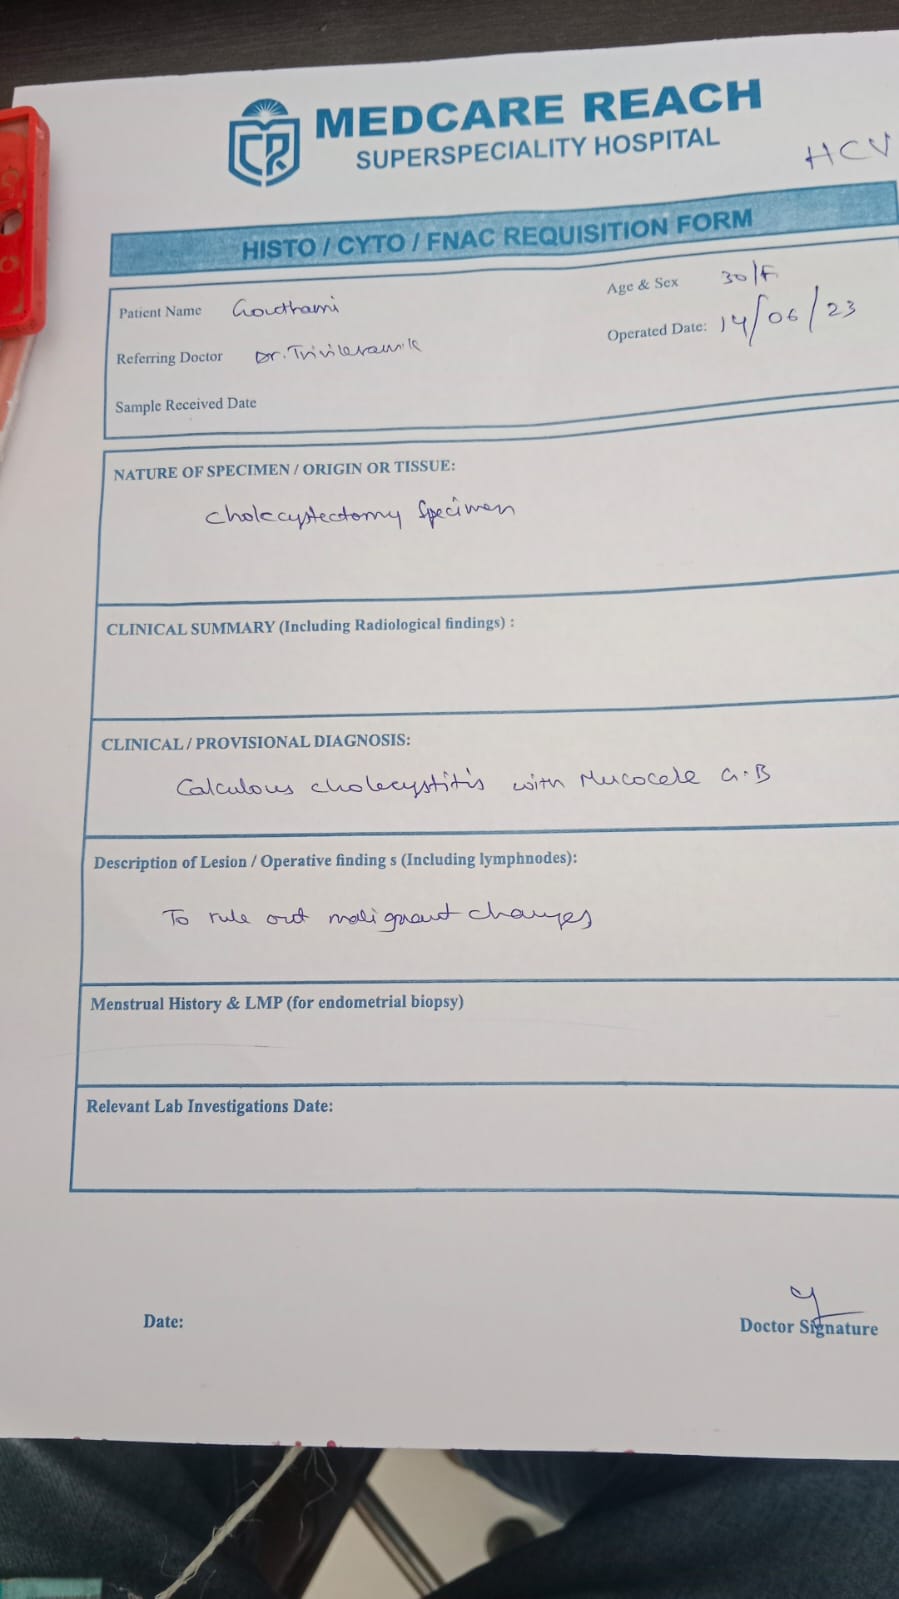 MEDCARE REACH
SUPERSPECIALITY HOSPITAL
HCV
HISTO / CYTO / FNAC REQUISITION FORM
Patient Name Gowthami
Age & Sex 30/F
Referring Doctor Dr.
Operated Date: 14/06/23
Sample Received Date
NATURE OF SPECIMEN / ORIGIN OR TISSUE:
Cholecystectomy Specimen
CLINICAL SUMMARY (Including Radiological findings) :
CLINICAL / PROVISIONAL DIAGNOSIS:
Calculous cholecystitis with Mucocele G.B
Description of Lesion / Operative finding s (Including lymphnodes):
To rule out malignant changes
Menstrual History & LMP (for endometrial biopsy)
Relevant Lab Investigations Date:
Date:
Doctor Signature